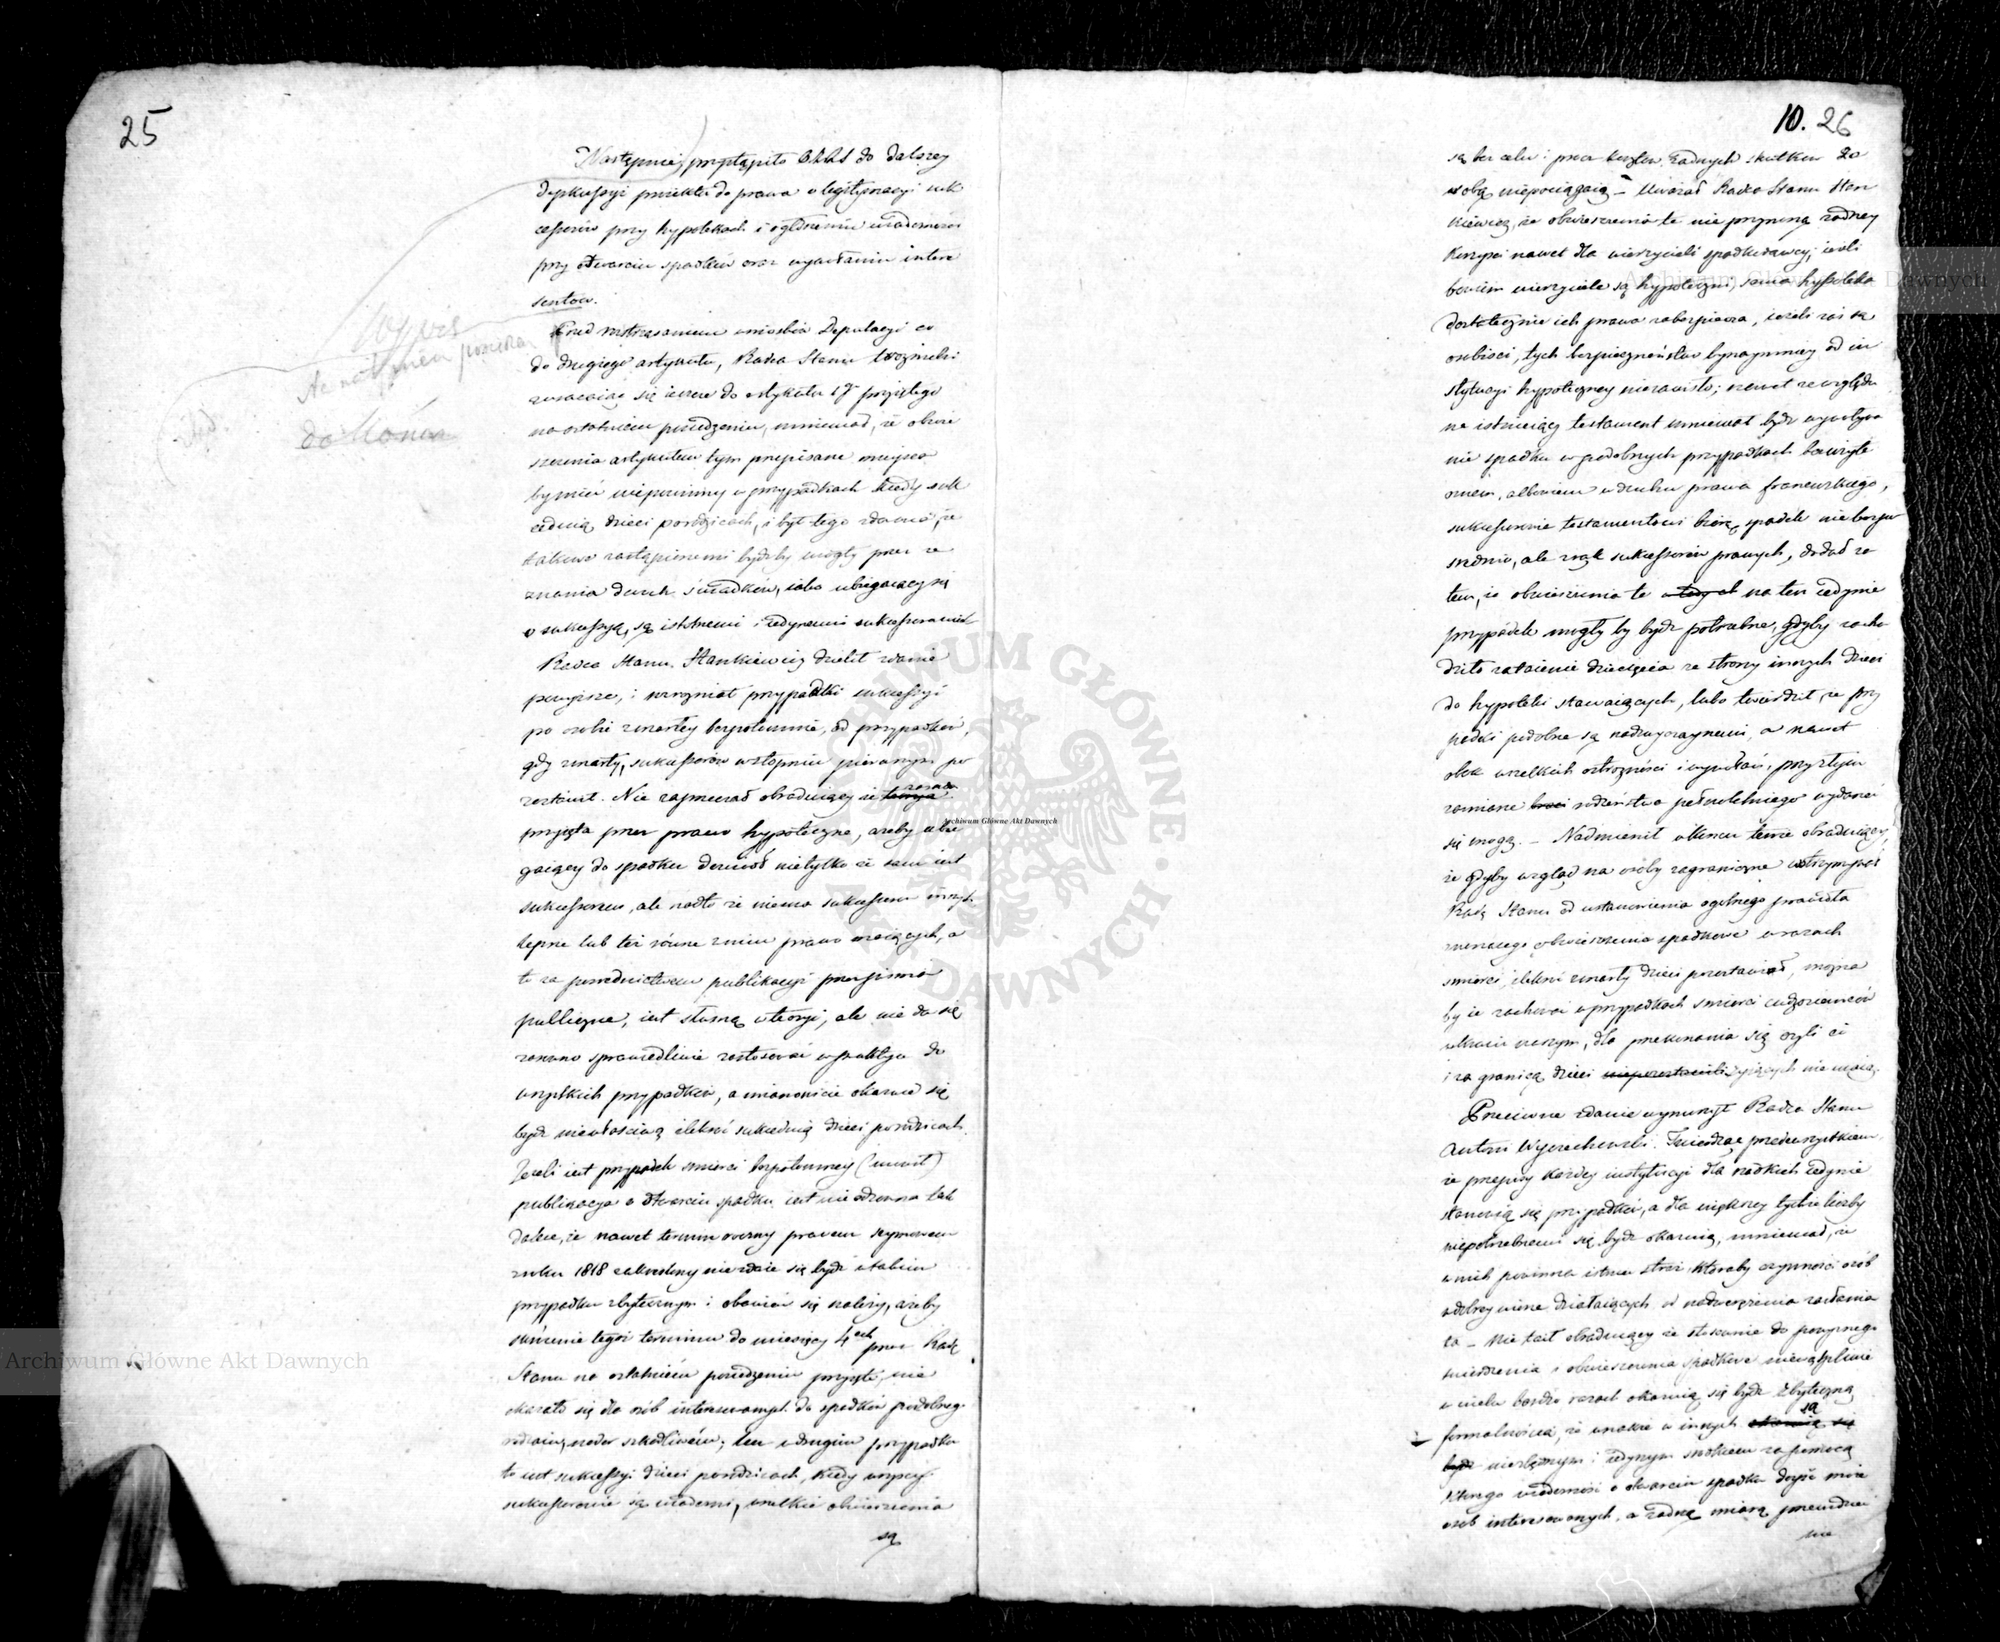 25
Następnie przystąpiło do dalszey
dyskussyi proiektu do prawa o legitymacyi suk
cessorów przy hypotekach i ogłoszeniu wiadomości
przy otwarciu spadków oraz wywołaniu intere
sentów.
Wypis
do
Przed roztrząsaniem wniosków Deputacyi co
do drugiego artykułu, Radca Stanu Woźnicki
zwracaiąc się ieszcze do Artykułu 1go przyiętego
na ostatniem posiedzeniu, mniemał, że obwie
szczenia artykułem tym przepisane mieysca
by mieć niepowinny w przypadkach kiedy suk
ceduią dzieci po rodzicach, i był tego zdania, że
takowe zastąpionemi bydź by mogły przez ze
znania dwóch świadków, iako ubiegaiący się
o sukcessyą, są istotnemi i iedynemi sukcessorami
Radca Stanu Stankiewicz dzielił zdanie
powyższe, i rozróżniał przypadki sukcessyi
po osobie zmarłey bezpotomnie, od przypadków,
gdy zmarły, sukcessorów w stopniu pierwszym po
zostawił. Nie zaprzeczał obraduiący że zasada
przyięta przez prawo hypoteczne, ażeby ubie
gaiący się do spadku dowiódł nietylko że sam iest
sukcessorem, ale nadto że niema sukcessorów
lepsze lub też równe z nim prawo maiących, a
to za pośrednictwem publikacyi przez pisma
publiczne, iest słuszną w teoryi, ale nie da się
zarówno sprawiedliwie zastosować w praktyce do
wszystkich przypadków, a mianowicie okazać się
bydź niewłaściwą ilekroć sukceduią dzieci po rodzicach.
Jeżeli iest przypadek śmierci bezpotomney (mówił)
publikacya o otwarciu spadku iest nieodzowna tak
dalece, że nawet termin roczny prawem seymowem
z roku 1818 zakreślony nie zdaie się bydź w takim
przypadku zbytecznym i obawiać się należy, ażeby
skrócenie tegoż terminu do miesięcy 4ech przez Radę
Stanu na ostatniem posiedzeniu przyięte, nie
okazało się dla osób interesowanych do spadków podobnego
rodzaiu, nader szkodliwem; lecz w drugim przypadku
to iest sukcessyi dzieci po rodzicach, kiedy wszyscy
sukcessorowie są wiadomi, wszelkie obwieszczenia
są
10. 26
są bez celu i prócz kosztów żadnych skutków za
sobą niepociągaią – Uważał Radca Stanu Stan
kiewicz, że obwieszczenia te nie przynoszą żadney
korzyści nawet dla wierzycieli spadkodawcy, ieśli
bowiem wierzyciele są hypoteczni, sama hypoteka
dostatecznie ich prawa zabezpiecza, ieżeli zaś są
osobiści, tych bezpieczeństwo bynaymniey od in
stytucyi hypoteczney niezawisło; nawet ze względu
na istnieiący testament mniemał bydź wywoływa
nie spadku w podobnych przypadkach bezużyte
cznem, albowiem w duchu prawa francuzkiego,
sukcessorowie testamentowi biorą spadek nie bezpo
średnio, ale z rąk sukcessorów prawych, dodał za
tem, że obwieszczenia te na ten iedynie
przypadek mogłyby bydź potrzebne, gdyby zacho
dziło zataienie dziecięcia ze strony innych dzieci
do hypoteki stawaiących, lubo twierdził, że przy
padki podobne są nadzwyczaynemi, a nawet
obok wszelkich ostrożności i wywołań, przy
zamianie rodzeństwa pełnoletniego wydarzać
się mogą. – Nadmienił w końcu tenże obraduiący,
że gdyby wzgląd na osoby zagraniczne wstrzymywał
Radę Stanu od ustanowienia ogólnego prawidła
znoszącego obwieszczenia spadkowe w razach
śmierci, ilekroć zmarły dzieci pozostawiał, można
by ie zachować w przypadkach śmierci cudzoziemców
w kraiu naszym, dla przekonania się czyli ci
i za granicą dzieci żyiących nie maią.
Przeciwne zdanie wynurzył Radca Stanu
Antoni Wyczechowski. Twierdząc przedewszystkiem
że przepisy każdey instytucyi dla rzadkich iedynie
stanowią się przypadków, a dla większey tychże liczby
niepotrzebnemi się bydź okazuią, mniemał, że
w nich powinna istnieć straż któraby czynności osób
w dobrey wierze działaiących, od nadwerężenia zasłania
ła – Nie taił obraduiący że stosowanie do powyższego
twierdzenia i obwieszczenia spadkowe niewątpliwie
w wielu bardzo razach okazuią się bydź zbyteczną
formalnością, że wszakże w innych są
niezbędnym i iedynym środkiem za pomocą
którego wiadomość o otwarciu spadku doyść może
osób interesowanych, a żadną miarą przewidzieć
nie
Archiwum Główne Akt Dawnych
Archiwum Główne Akt Dawnych
Archiwum Główne Akt Dawnych
ARCHIWUM GŁÓWNE AKT DAWNYCH